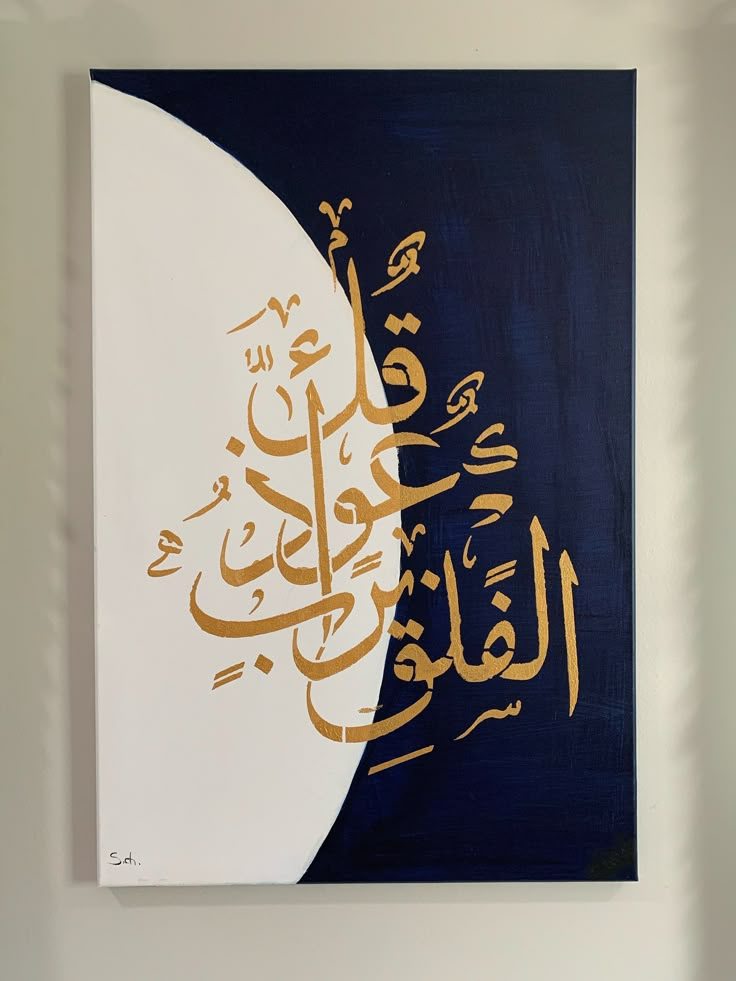 قُلْ أَعُوذُ بِرَبِّ الْفَلَقِ
S.ch.